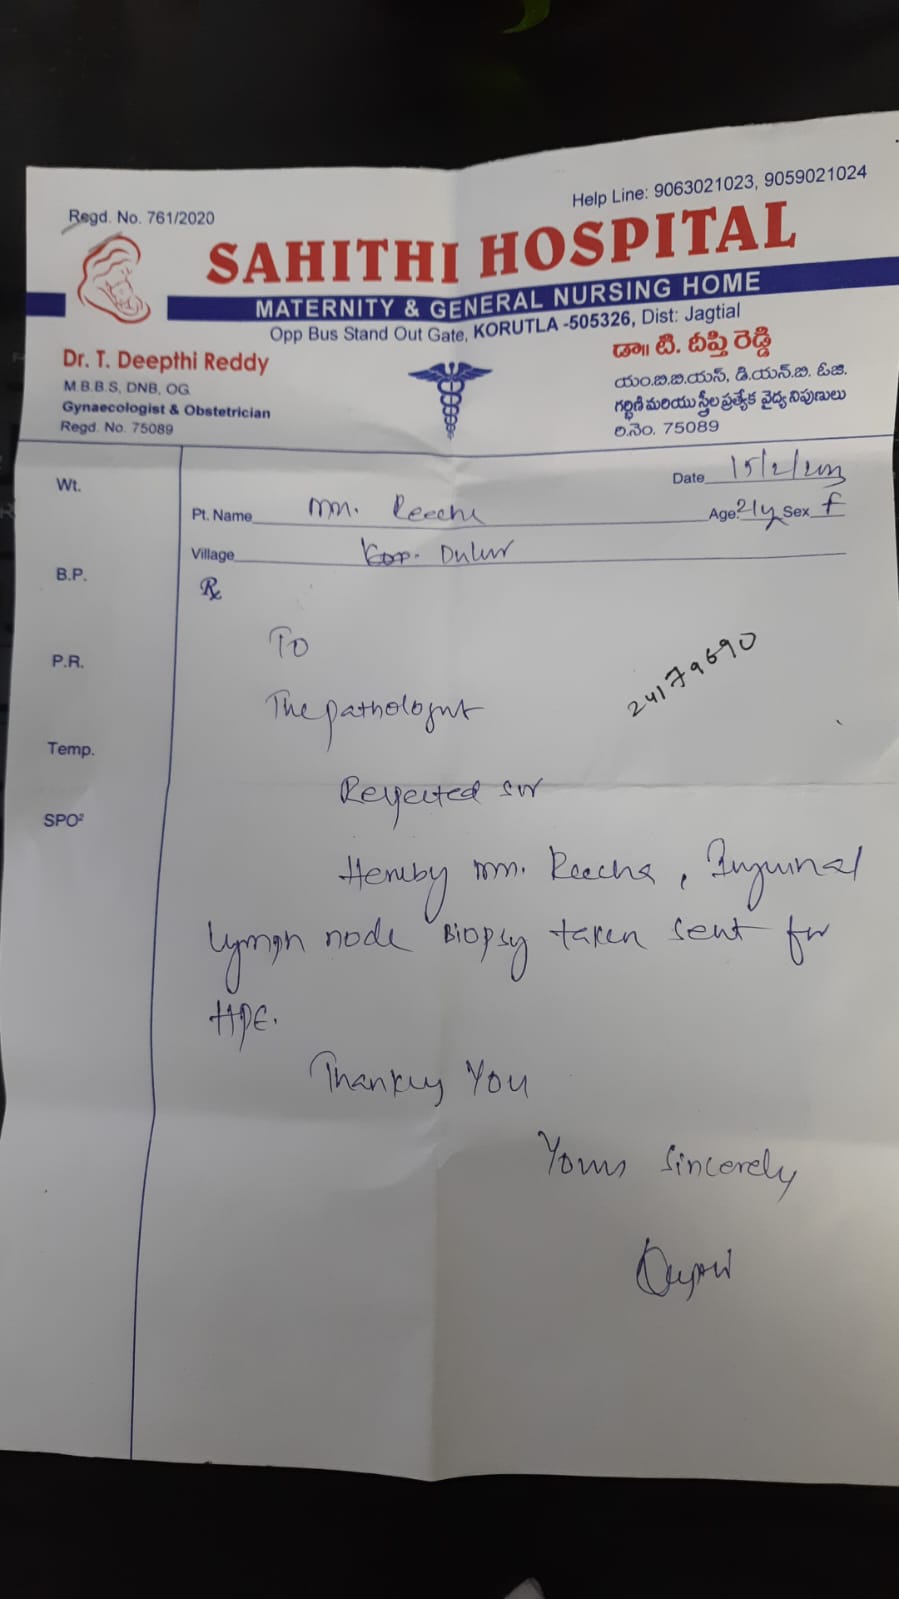 Regd. No. 761/2020
Help Line: 9063021023, 9059021024
SAHITHI HOSPITAL
MATERNITY & GENERAL NURSING HOME
Opp Bus Stand Out Gate, KORUTLA -505326, Dist: Jagtial
Dr. T. Deepthi Reddy
M B.B.S, DNB, OG
Gynaecologist & Obstetrician
Regd. No. 75089
డా॥ టి. దీప్తి రెడ్డి
యం.బి.బి.యస్, డి.యన్.బి. ఓ.జి.
గర్భిణి మరియు స్త్రీల ప్రత్యేక వైద్య నిపుణులు
రి.నెం. 75089
Wt.
B.P.
P.R.
Temp.
SPO²
Date 15/2/
Pt. Name Age 21y Sex F
Village
Rx
To
The pathologist
24179690
Respected sir
Hereby Inguinal
lymph node Biopsy taken sent for
HPE.
Thanking You
Yours Sincerely